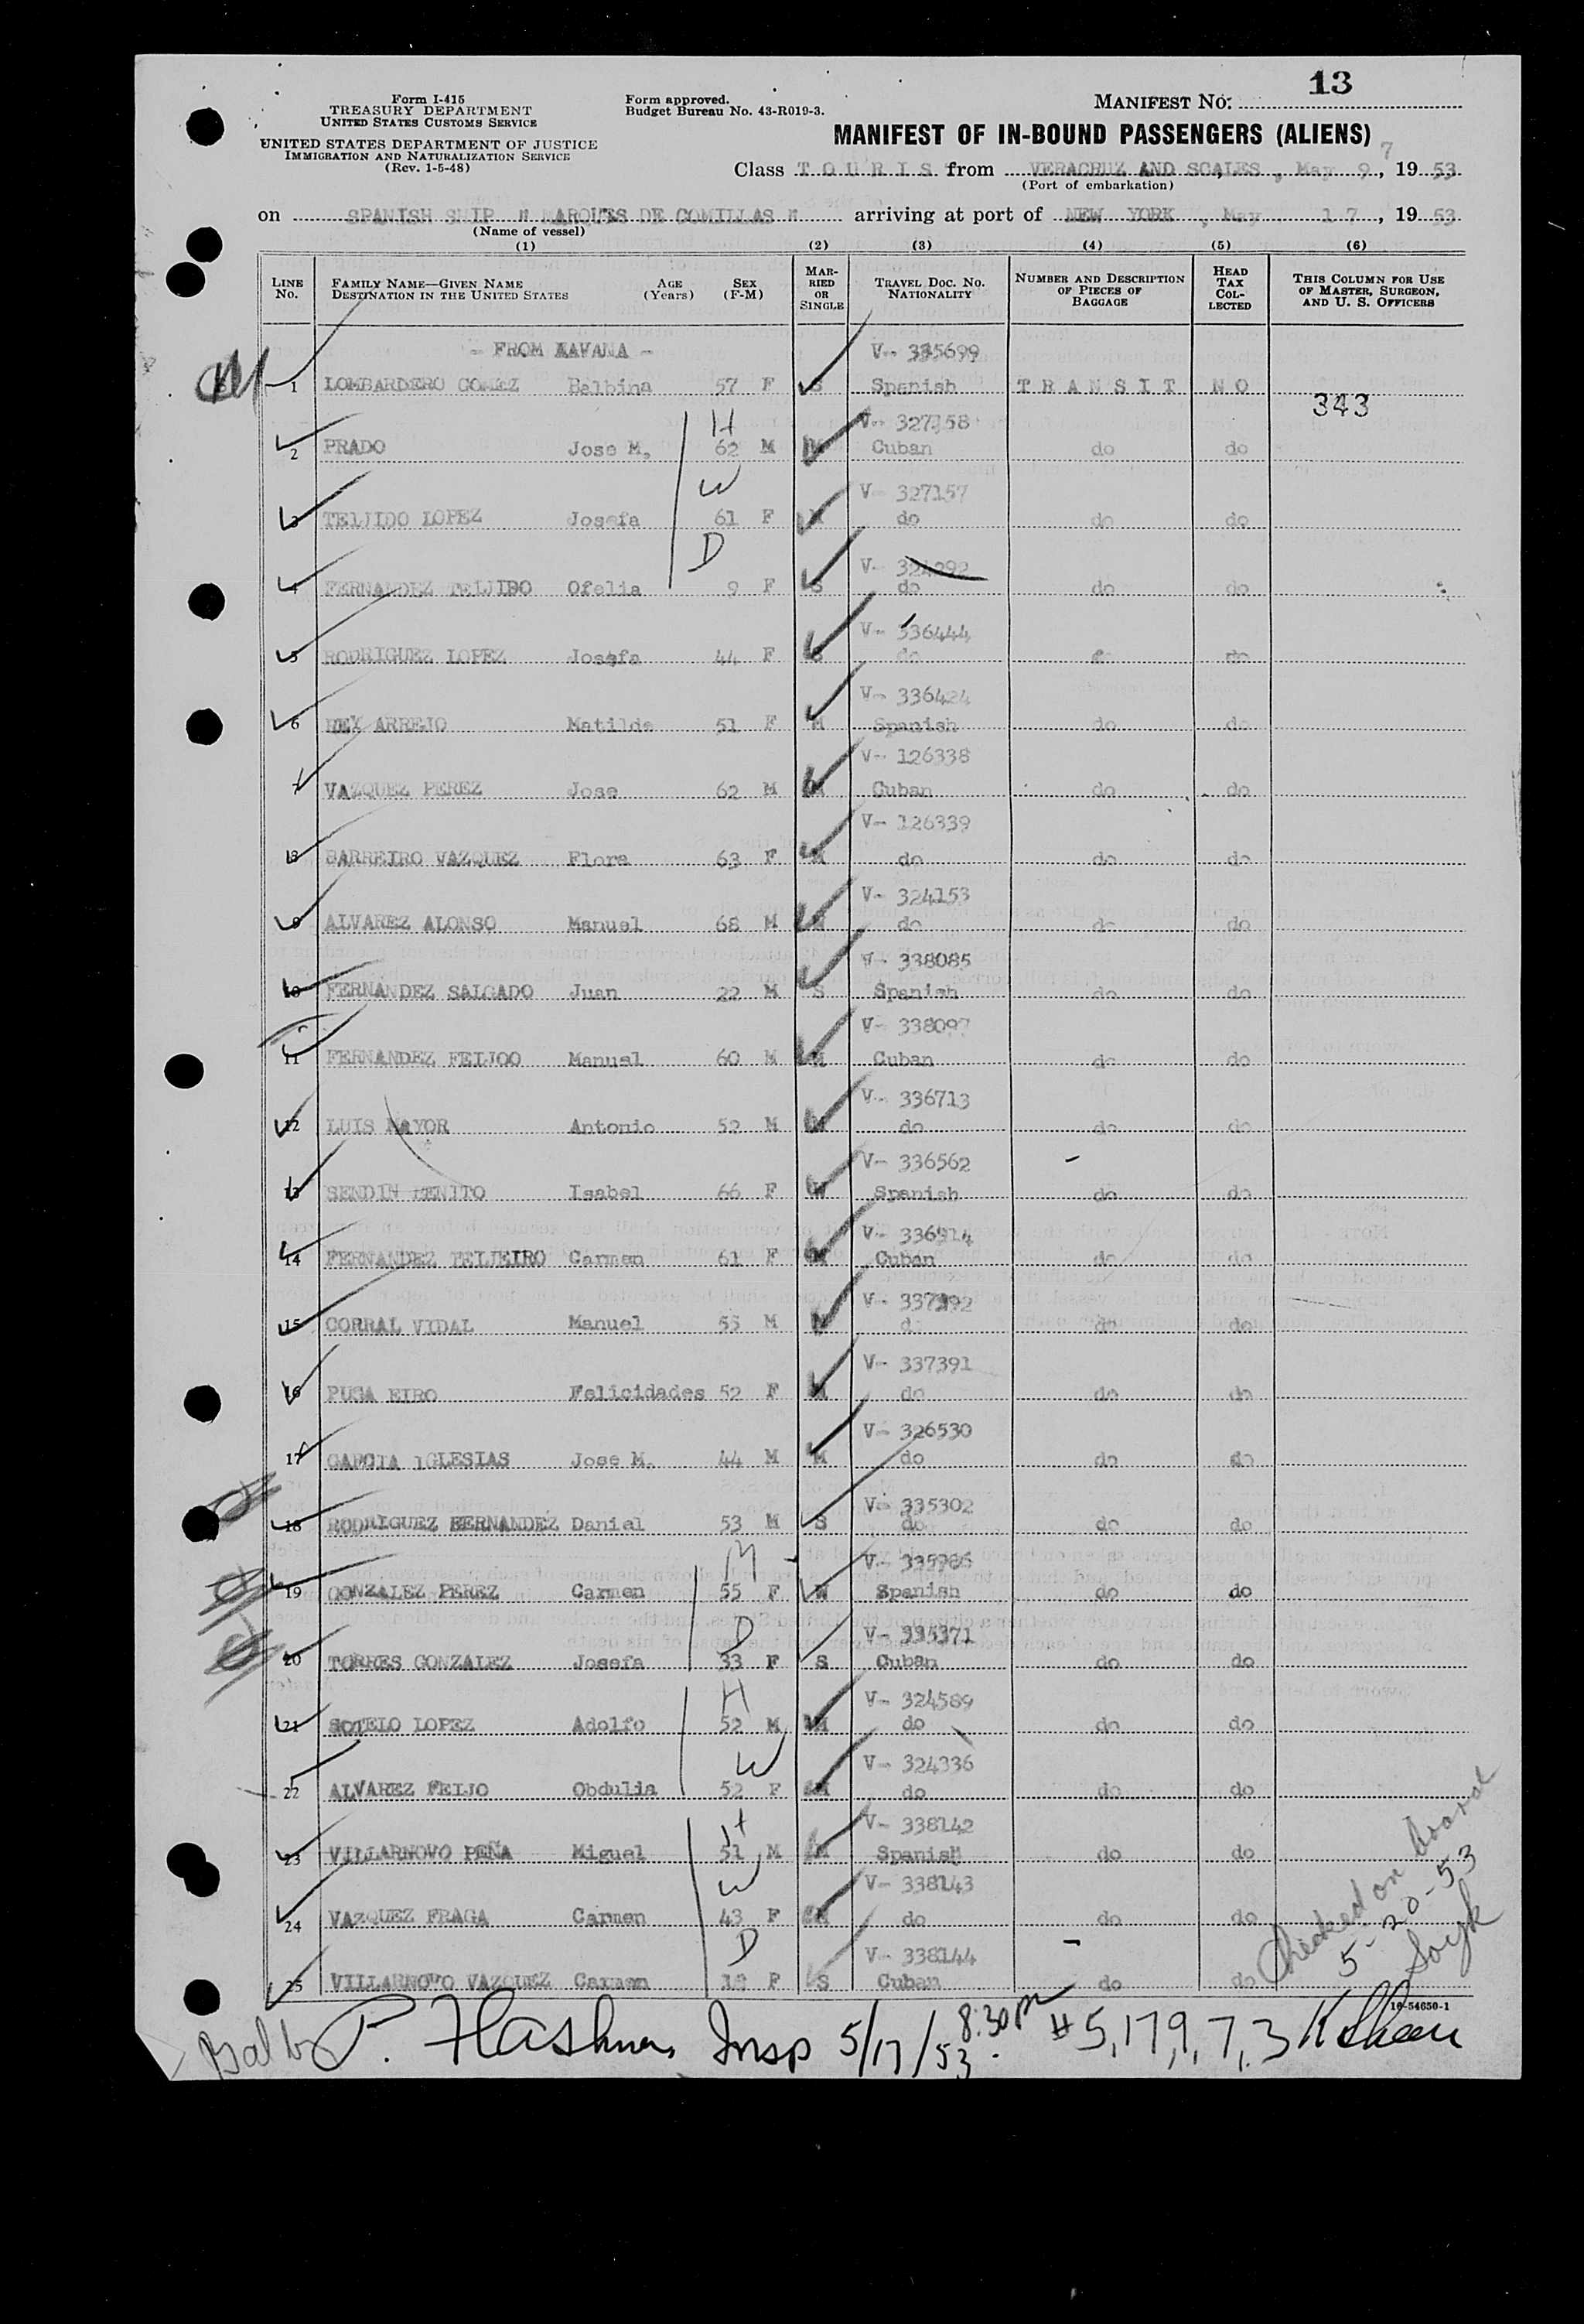 13
Form I-415
TREASURY DEPARTMENT
UNITED STATES CUSTOMS SERVICE
UNITED STATES DEPARTMENT OF JUSTICE
IMMIGRATION AND NATURALIZATION SERVICE
(Rev. 1-5-48)
Form approved.
Budget Bureau No. 43-R019-3.
MANIFEST NO.
MANIFEST OF IN-BOUND PASSENGERS (ALIENS)
7
Class T O U R I S from VERACRUZ AND SCALES, May 9, 1953
(Port of embarkation)
on SPANISH SHIP " MARQUES DE COMILLAS " arriving at port of NEW YORK, May 17, 1953
(Name of vessel)
(1) (2) (3) (4) (5) (6)
LINE NO. FAMILY NAME—GIVEN NAME DESTINATION IN THE UNITED STATES AGE (Years) SEX (F-M) MARRIED OR SINGLE TRAVEL DOC. NO. NATIONALITY NUMBER AND DESCRIPTION OF PIECES OF BAGGAGE HEAD TAX COLLECTED THIS COLUMN FOR USE OF MASTER, SURGEON, AND U. S. OFFICERS
- FROM HAVANA - V- 335699
1 LOMBARDERO GOMEZ Balbina 57 F S Spanish T R A N S I T N O
343
H V- 327158
2 PRADO Jose M. 62 M M Cuban do do
W V- 327157
3 TEIJIDO LOPEZ Josefa 61 F M do do do
D V- 324292
4 FERNANDEZ TEIJIDO Ofelia 9 F S do do do
V- 336444
5 RODRIGUEZ LOPEZ Josefa 44 F S do do
V- 336424
6 REY ARREJO Matilde 51 F M Spanish do do
V- 126338
7 VAZQUEZ PEREZ Jose 62 M M Cuban do do
V- 126339
8 BARREIRO VAZQUEZ Flora 63 F M do do do
V- 324153
9 ALVAREZ ALONSO Manuel 68 M do do do
V- 338085
10 FERNANDEZ SALGADO Juan 22 M S Spanish do do
V- 338097
11 FERNANDEZ FEIJOO Manuel 60 M M Cuban do do
V- 336713
12 LUIS MAYOR Antonio 52 M do do do
V- 336562
13 SENDIN BENITO Isabel 66 F W Spanish do do
V- 336914
14 FERNANDEZ TEIJEIRO Carmen 61 F M Cuban do do
V- 337392
15 CORRAL VIDAL Manuel 55 M M do do do
V- 337391
16 PUGA EIRO Felicidades 52 F M do do do
V- 326530
17 GARCIA IGLESIAS Jose M. 44 M M do do do
V- 335302
18 RODRIGUEZ HERNANDEZ Daniel 53 M S do do do
M
19 GONZALEZ PEREZ Carmen 55 F W Spanish do do
D V- 335371
20 TORRES GONZALEZ Josefa 33 F S Cuban do do
H V- 324589
21 SOTELO LOPEZ Adolfo 52 M M do do do
W V- 324336
22 ALVAREZ FEIJO Obdulia 52 F M do do do
H V- 338142
23 VILLARNOVO PEÑA Miguel 51 M M Spanish do do
W V- 338143
24 VAZQUEZ FRAGA Carmen 43 F M do do do
D V- 338144
25 VILLARNOVO VAZQUEZ Carmen F S Cuban do do
Checked on board
5-20-53
16-54650-1
Insp 5/17/53. 8:30 pm # 5,17,9,7,3